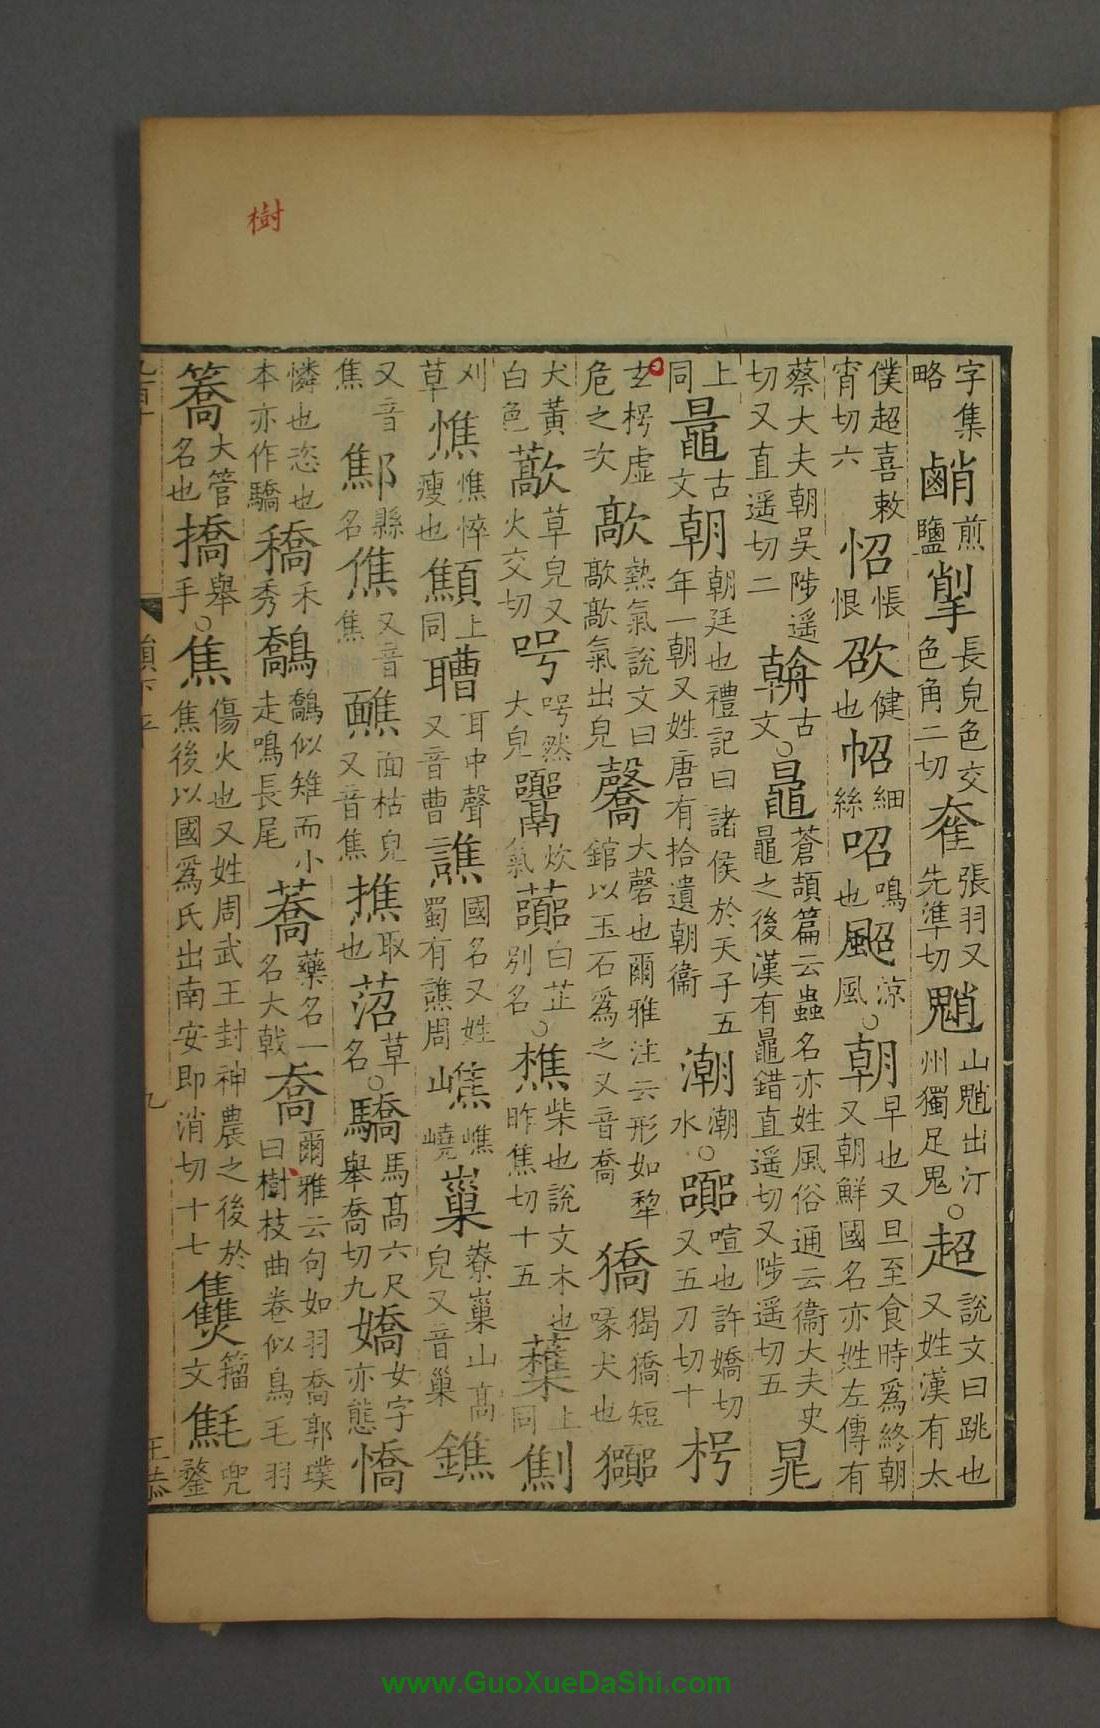 樹
字集略䴛煎鹽揱長皃色交色角二切奞張羽又先準切魈山魈出汀州獨足鬼○超說文曰跳也又姓漢有太
僕超喜敕宵切六怊悵恨欩健也㡑細絲㕚鳴也颷涼風○朝早也又旦至食時爲終朝又朝鮮國名亦姓左傳有
蔡大夫朝吳陟遥切又直遥切二𦩻古文○鼂蒼頡篇云蟲名亦姓風俗通云衞大夫史鼂之後漢有鼂錯直遥切又陟遥切五晁
上同鼌古文朝朝廷也禮記曰諸侯於天子五年一朝又姓唐有拾遺朝衡潮潮水○囂喧也許嬌切又五刀切十枵
玄枵虛危之次歊熱氣說文曰歊歊氣出皃毊大磬也爾雅注云形如犂錧以玉石爲之又音喬獢猲獢短喙犬也獢
犬黃白色藃草皃又火交切呺呺然大皃炊氣藃白芷別名○樵柴也說文木也昨焦切十五蕉上同劁
刈草憔憔悴瘦也顦上同𦗵耳中聲又音曹譙國名又姓蜀有譙周嶕嶕嶢巢嶚巢山高皃又音巢鐎
又音焦鄡縣名僬又音焦醮面枯皃又音焦撨取也菬草名○驕馬高六尺舉喬切九嬌女字亦態憍
憐也恣也本亦作驕穚禾秀鷮鷮似雉而小走鳴長尾蕎藥名一名大戟喬爾雅云句如羽喬郭璞曰樹枝曲卷似鳥毛羽
簥大管名也撟舉手○焦傷火也又姓周武王封神農之後於焦後以國爲氏出南安即消切十七𤓪籀文䩌兜鍪
王恭
www.GuoXueDaShi.com